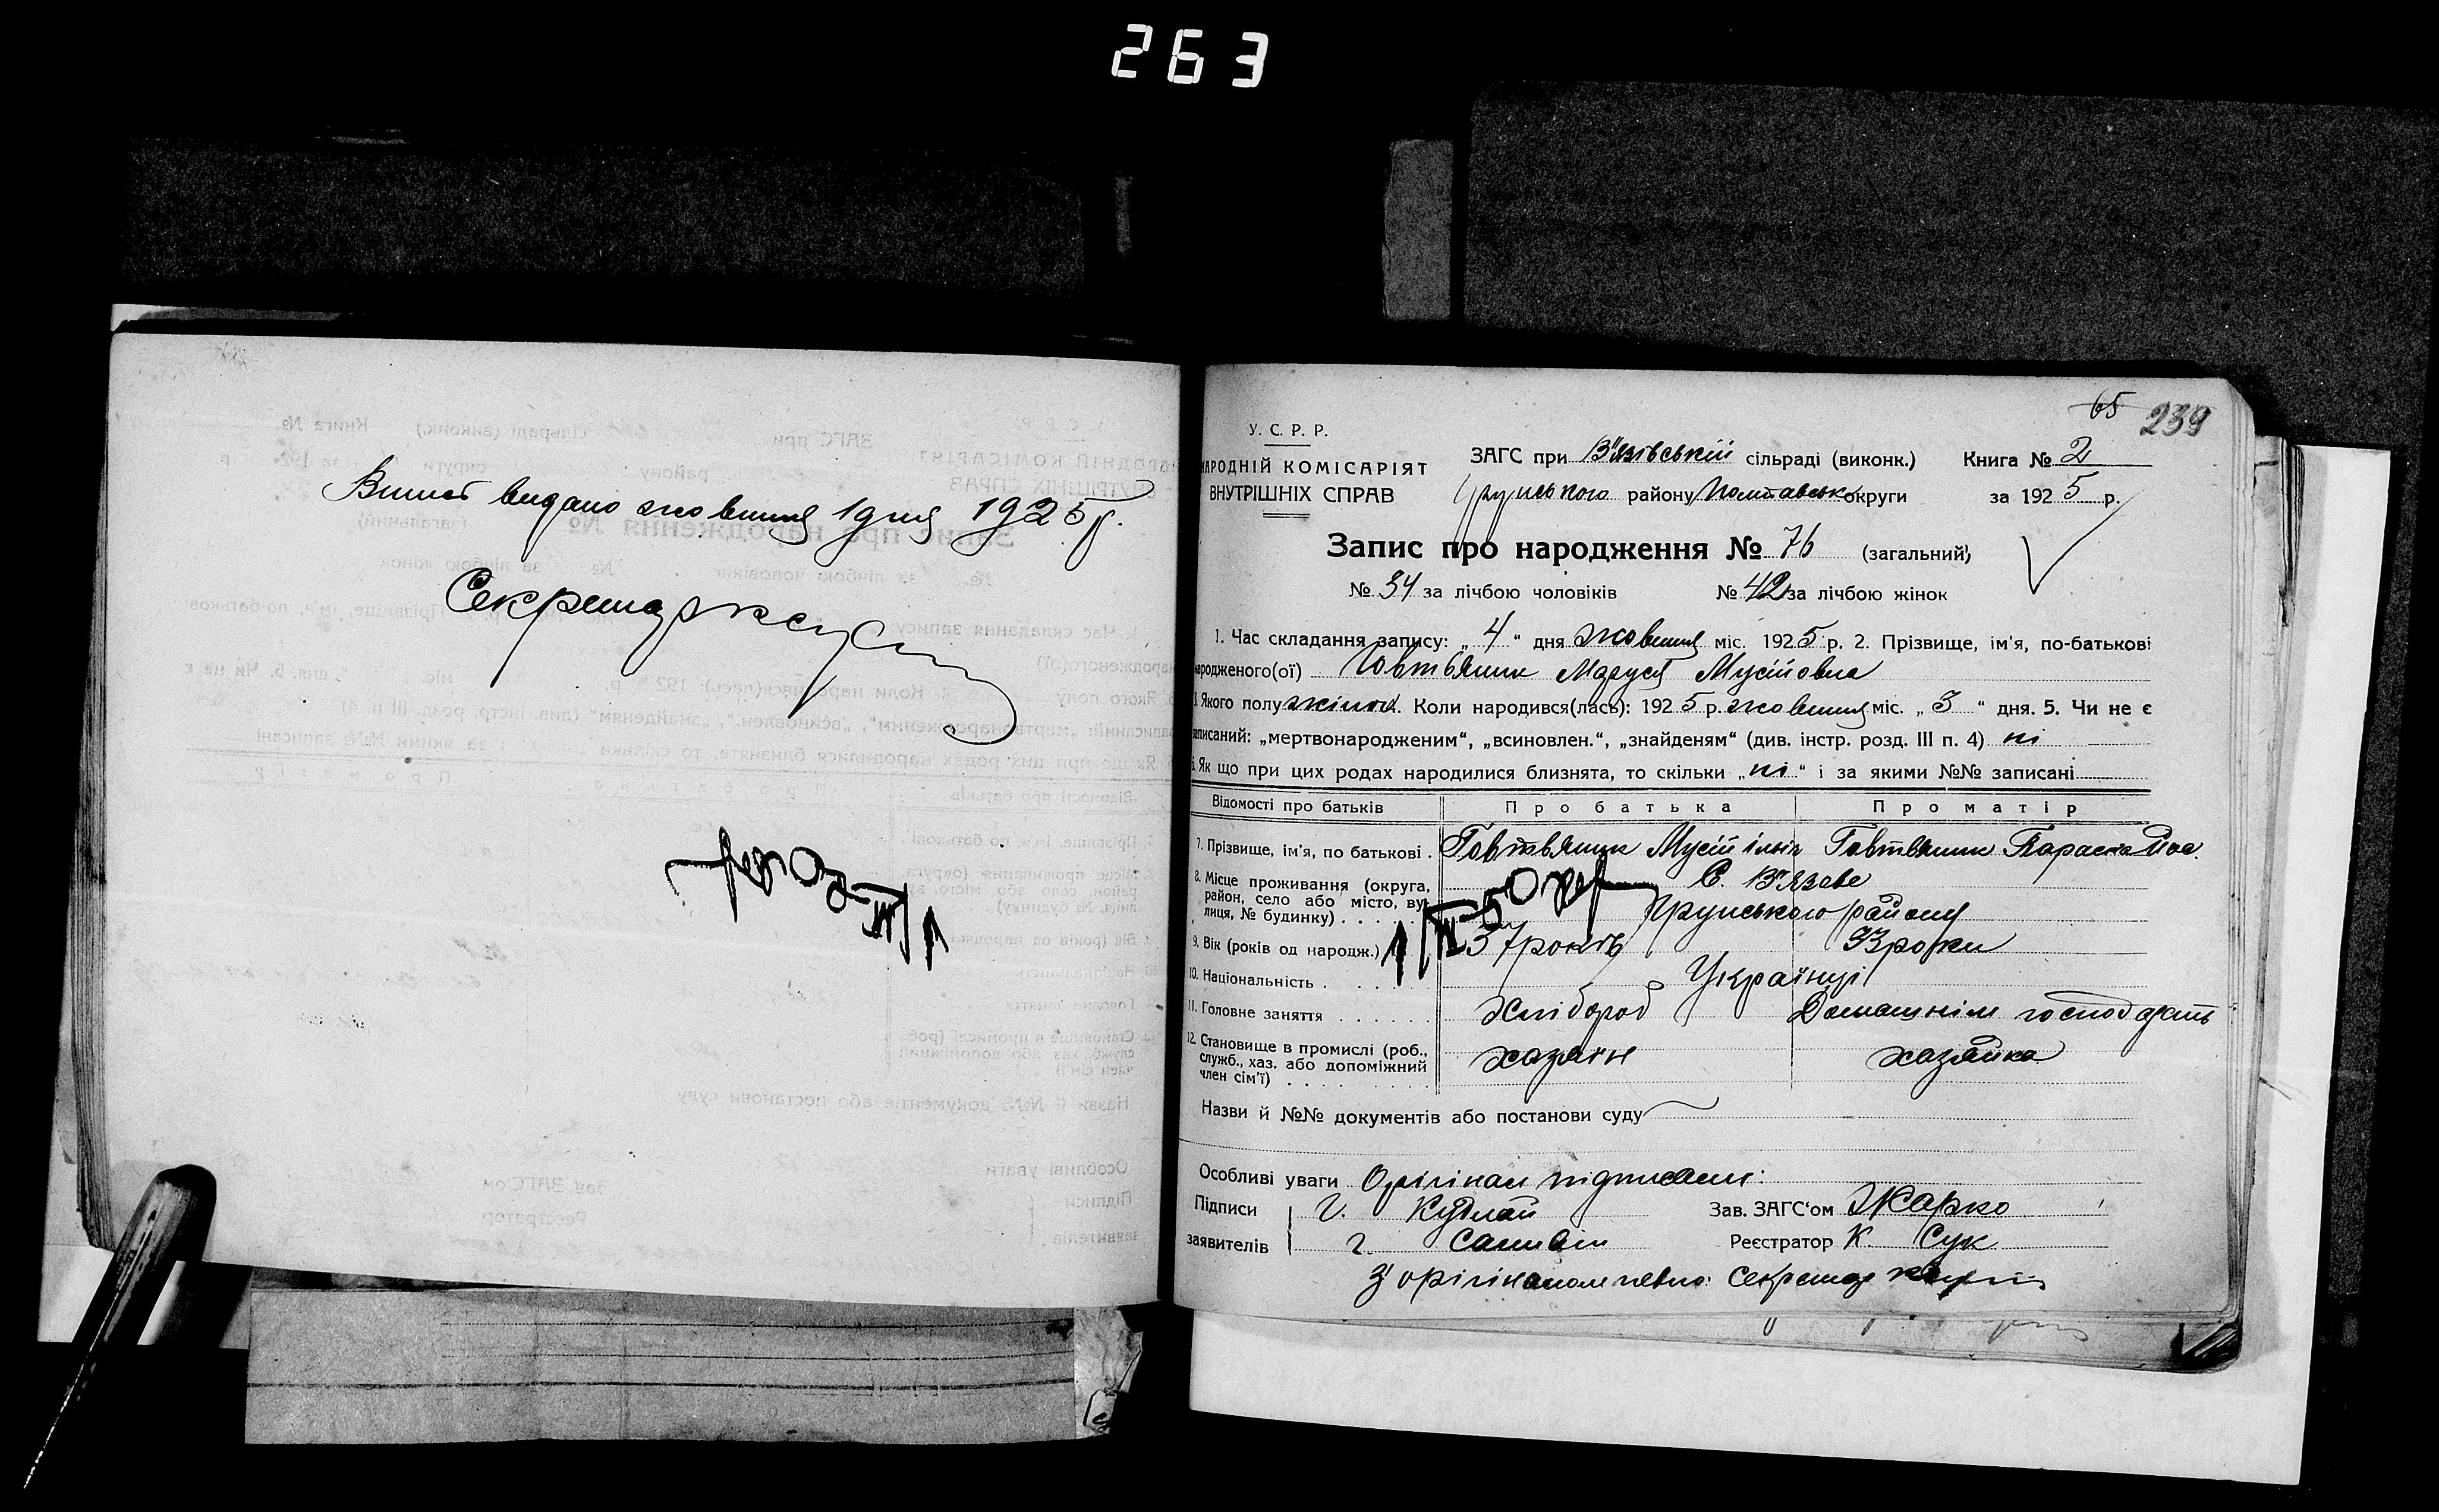 263
Виписъ видано жовтня 1 дня 1925 р.
Секретар
65 239
У. С. Р. Р.
НАРОДНІЙ КОМІСАРІЯТ
ВНУТРІШНІХ СПРАВ
ЗАГС при В'язівській сільраді (виконк.) Книга № 2
Грунського району Полтавськ округи за 1925 р.
Запис про народження № 76 (загальний)
№ 34 за лічбою чоловіків № 42 за лічбою жінок
1. Час складання запису: „4“ дня жовтня міс. 1925 р. 2. Прізвище, ім'я, по-батькові
народженого(ої) Говтвяник Маруся Мусіівна
3. Якого полу жіноч. Коли народився(лась): 1925 р. жовтня міс. „3“ дня. 5. Чи не є
записаний: „мертвонародженим“, „всиновлен.“, „знайденям“ (див. інстр. розд. III п. 4) ні
6. Як що при цих родах народилися близнята, то скільки „ні“ і за якими №№ записані
Відомості про батьків Про батька Про матір
7. Прізвище, ім'я, по батькові . Говтвяник Мусій Ільїч Говтвяник Параска
8. Місце проживання (округа, район, село або місто, вулиця, № будинку) . . . . . С. В'язове
Грунського району
9. Вік (років од народж.) 37 років 33 роки
10. Національність . . . . . Українці
11. Головне заняття . . . . . . Хлібороб Домашнім господарств
12. Становище в промислі (роб., служб., хаз. або допоміжний член сім'ї) . . . . . . . . хазяїн хазяйка
Назви й №№ документів або постанови суду
Особливі уваги Орігінал підписали:
Підписи Г. Кудлай Зав. ЗАГС'ом Жарко
заявителів Г. Реєстратор К. Сук
З орігіналом певно: Секретар